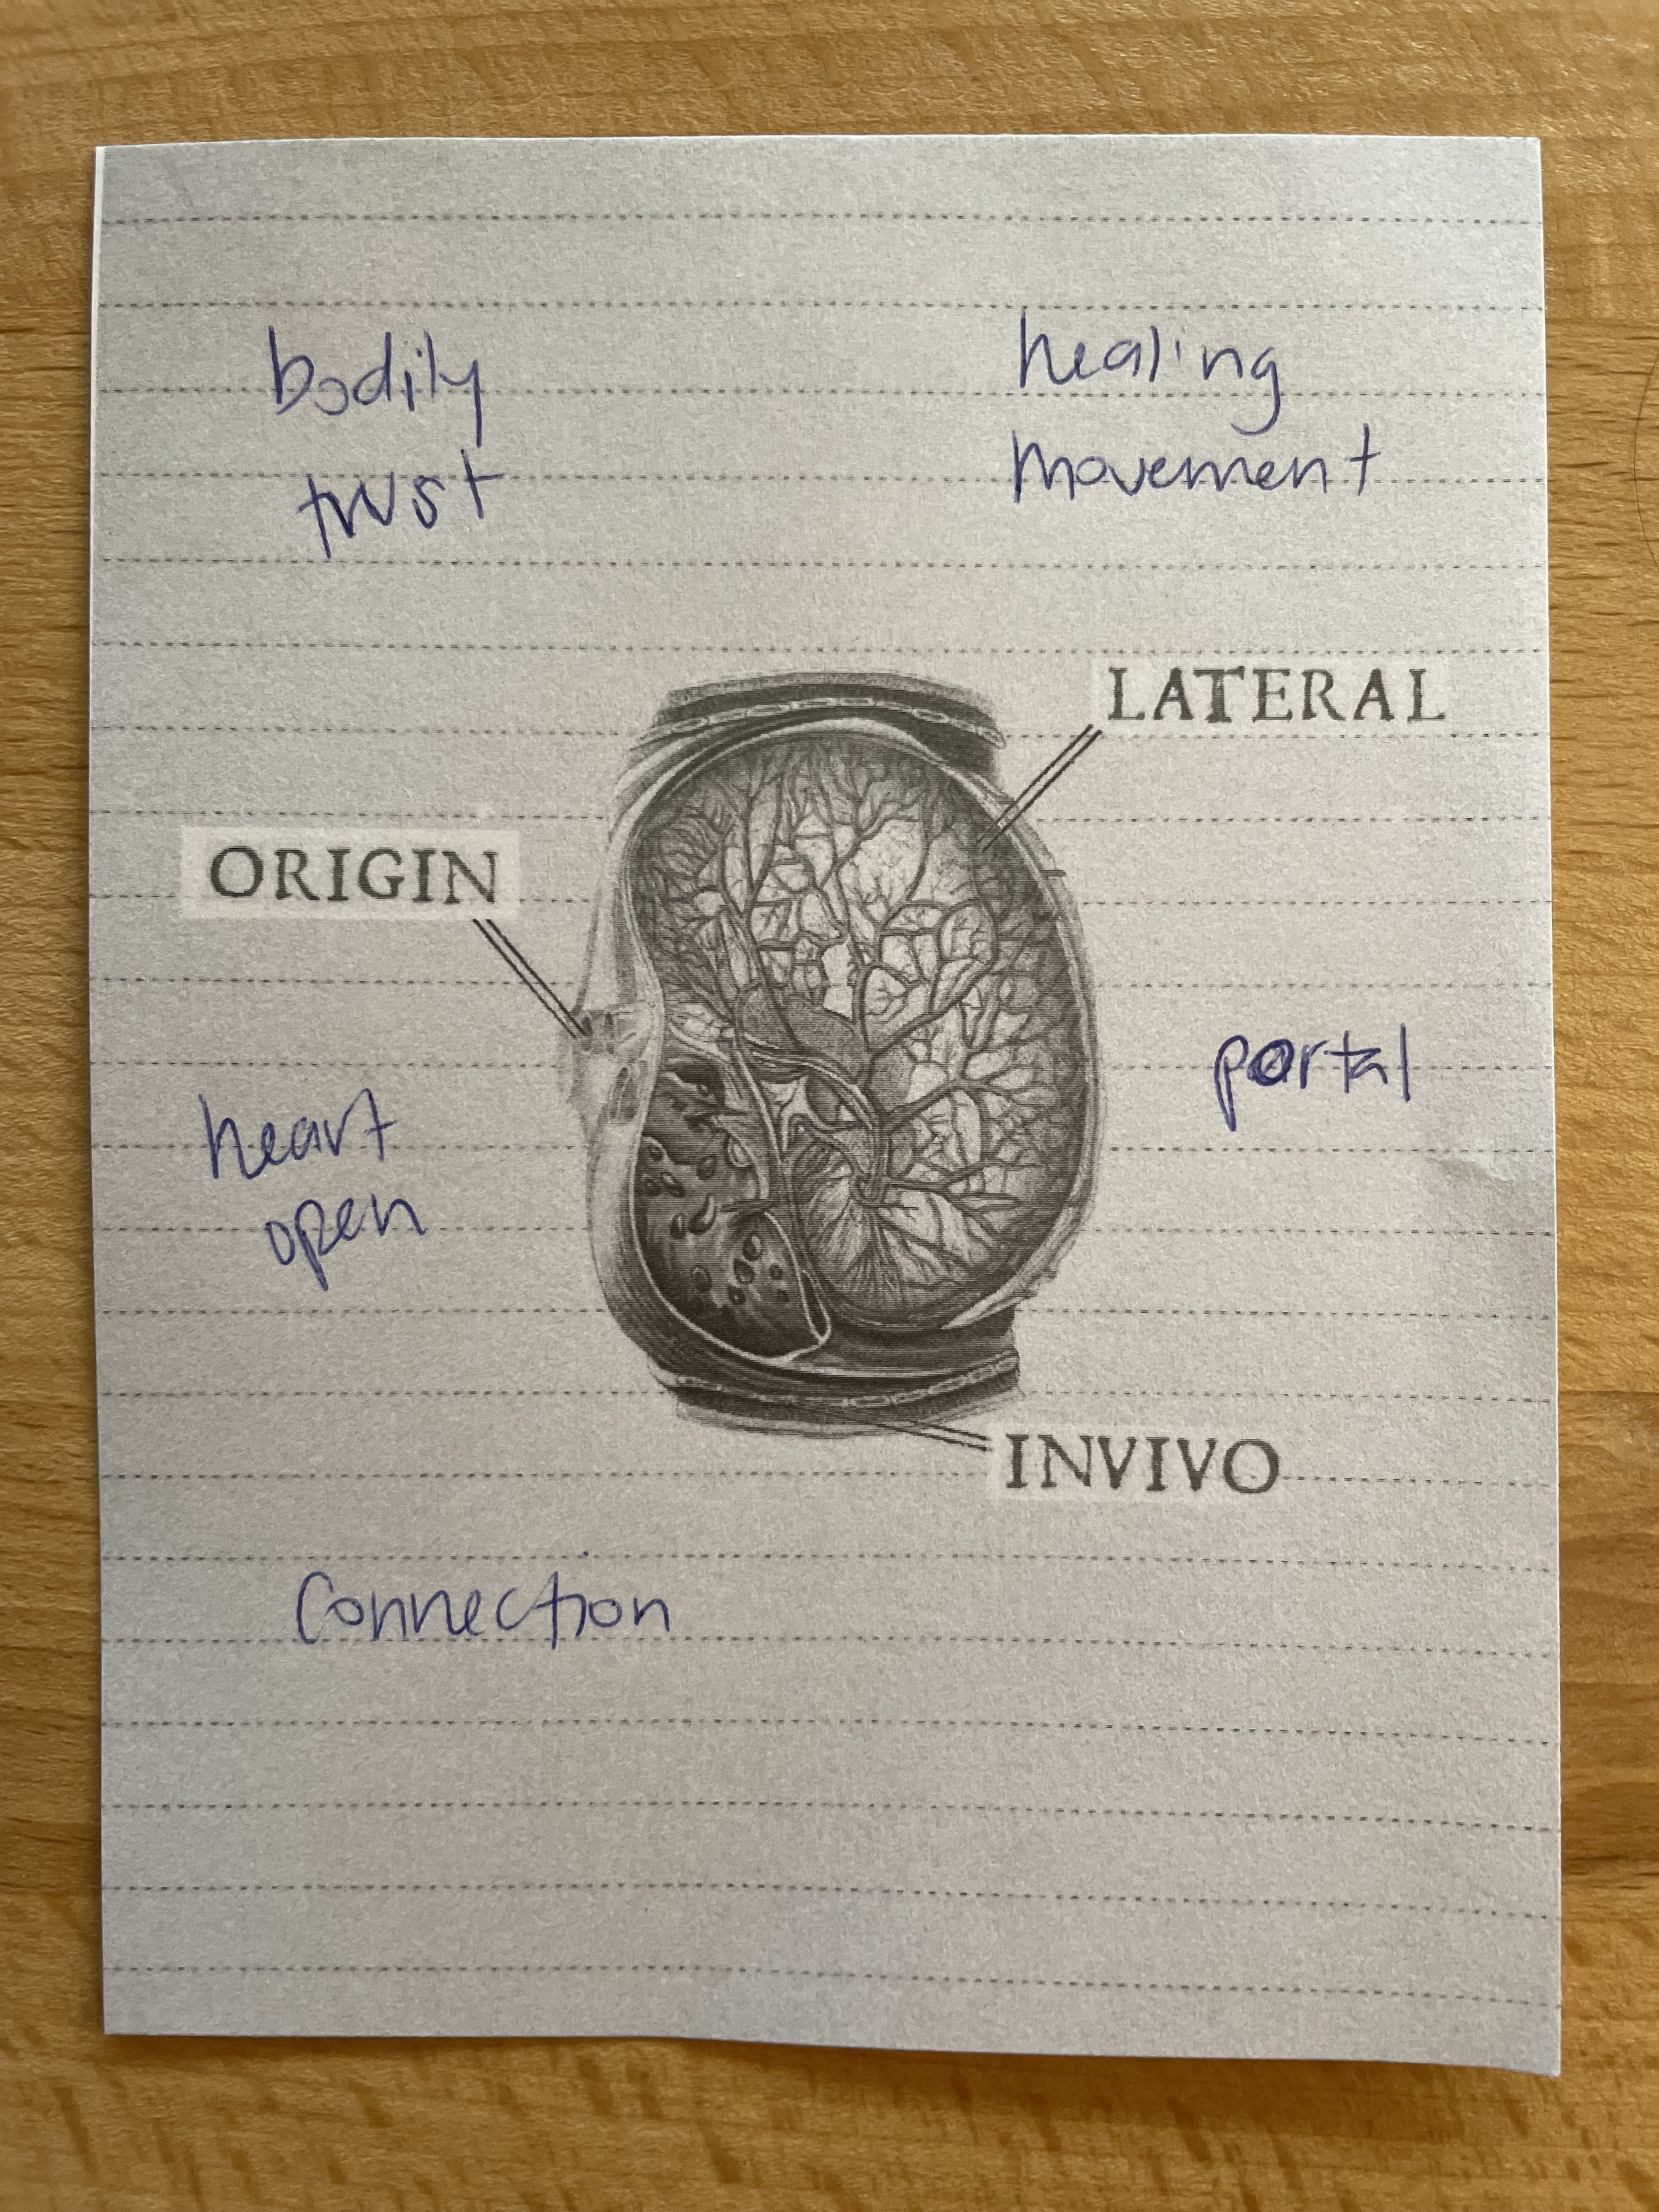 bodily
trust
healing
movement
LATERAL
ORIGIN
portal
heart
open
INVIVO
Connection